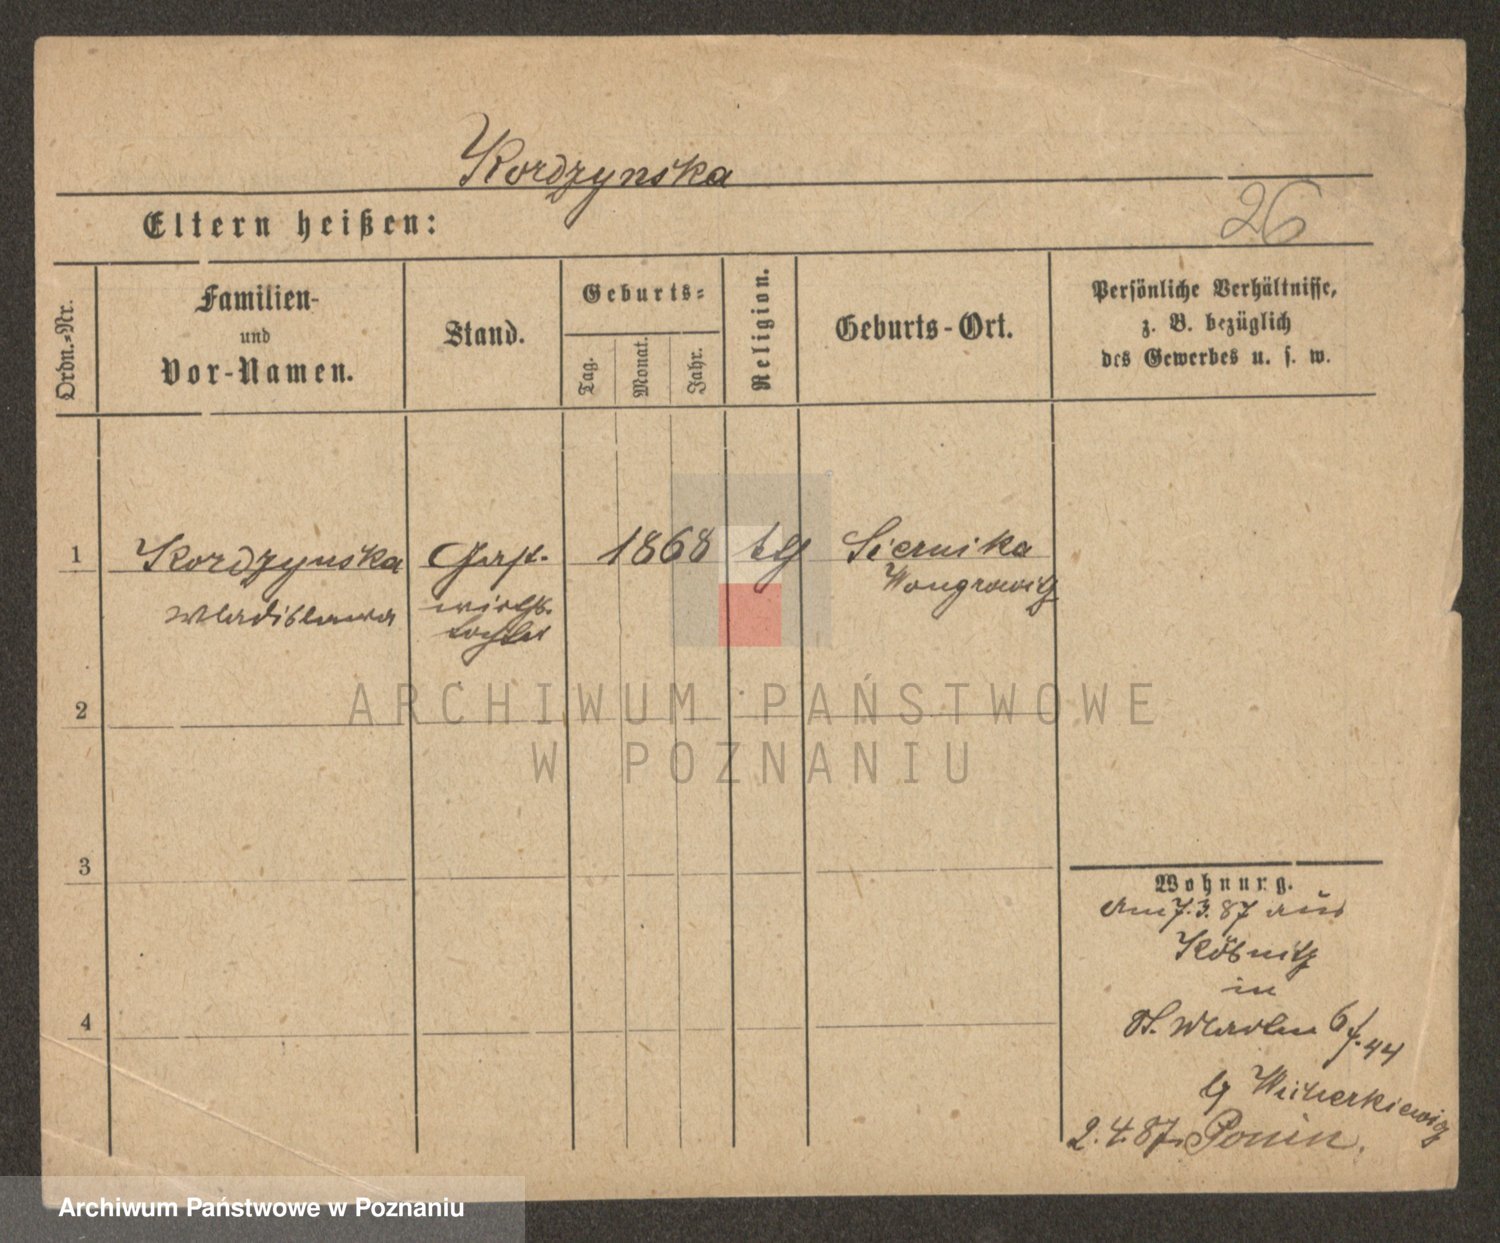 Kordzynska
Eltern heißen:
26
Ordn.-Nr.
Familien-
und
Vor-Namen.
Stand.
Geburts-
Tag.
Monat.
Jahr.
Religion.
Geburts-Ort.
Persönliche Verhältnisse,
z. B. bezüglich
des Gewerbes u. s. w.
1
Kordzynska
Wladislawa
Gast-
wirths-
tochter
1868
Siernika
Wongrowitz
2
3
4
Wohnung.
am 7.3.87 aus
Köbnitz
in
St. Martin 6
44
b/ Wicherkiewicz
2.4.87. Ponin.
ARCHIWUM PAŃSTWOWE
W POZNANIU
Archiwum Państwowe w Poznaniu